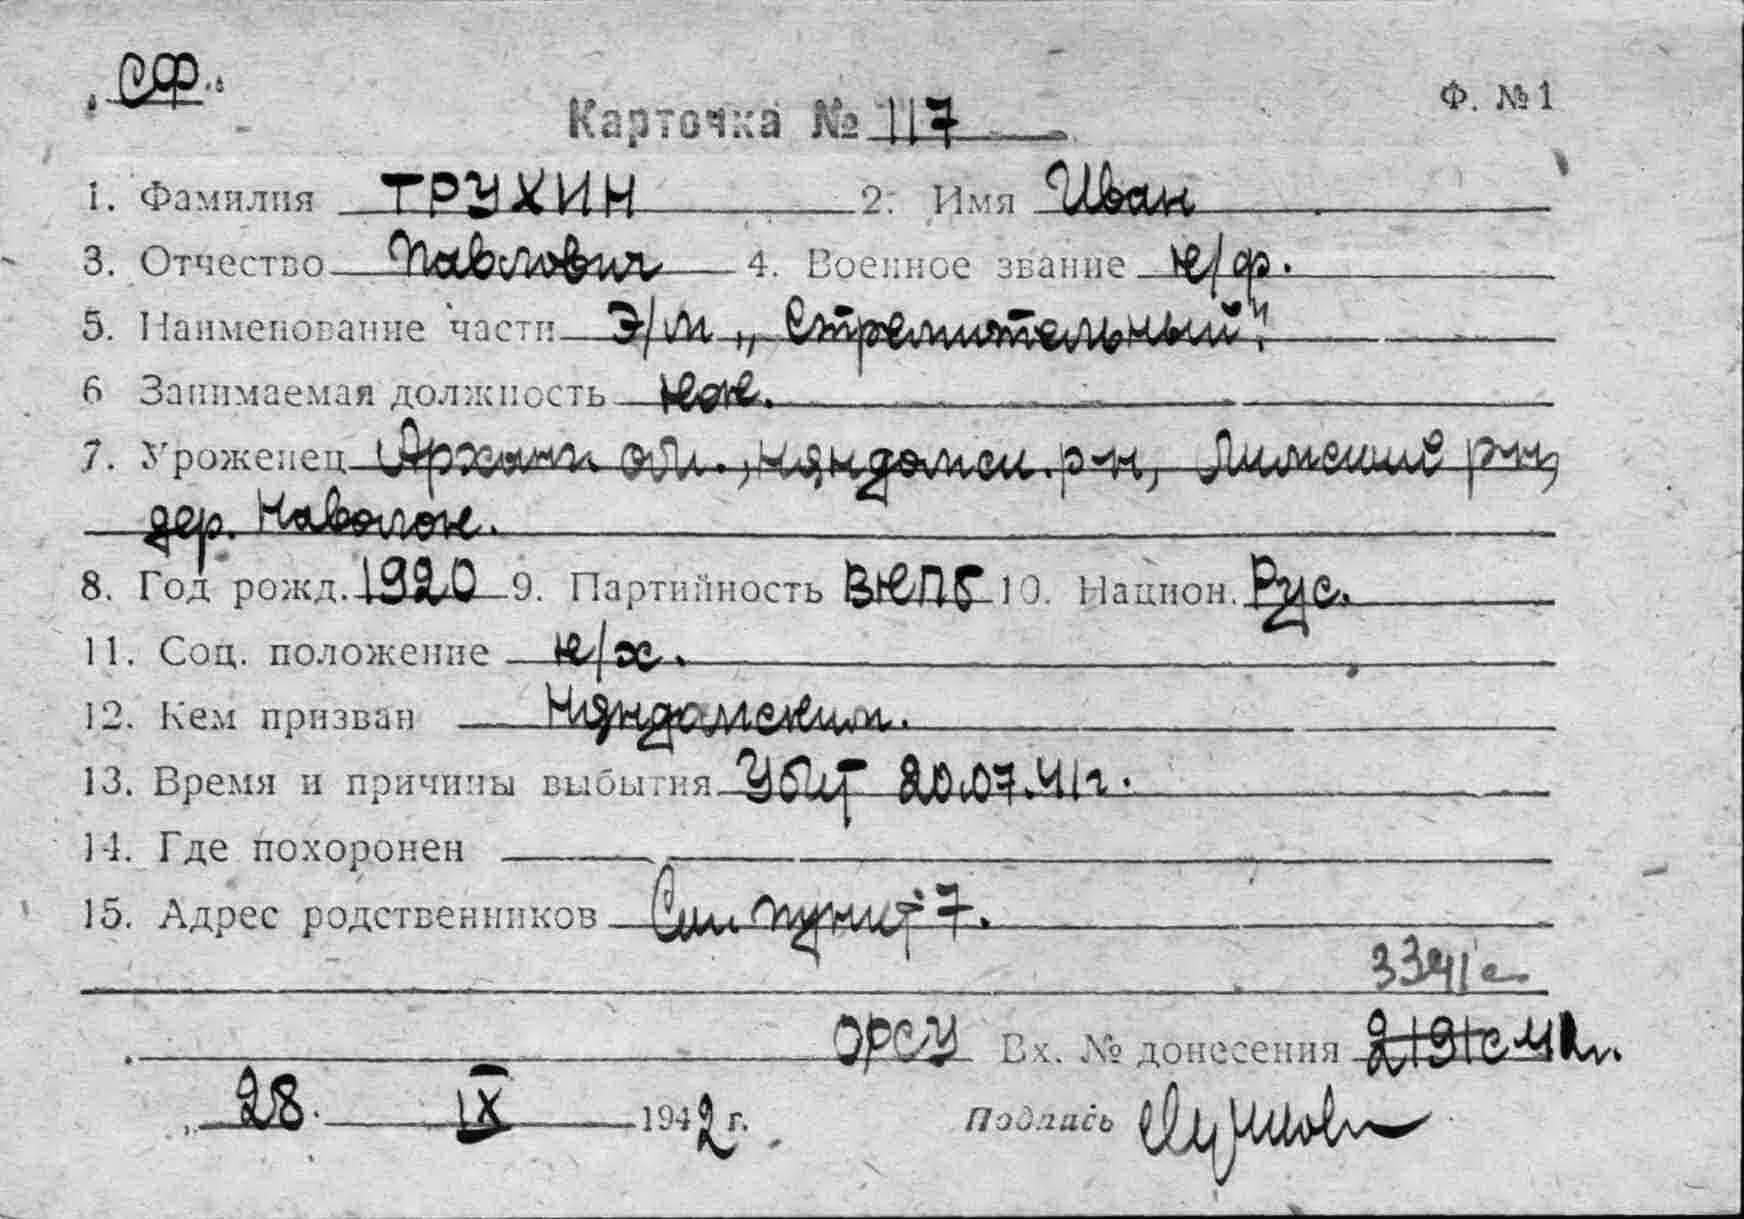 СФ.
Ф. №1
Карточка № 117
1. Фамилия ТРУХИН 2. Имя Иван
3. Отчество Павлович 4. Военное звание к/ф.
5. Наименование части Э/м „Стремительный".
6 Занимаемая должность
7. Уроженец Арханг обл., Няндомск. р-н, р-н,
дер. Наволок.
8. Год рожд. 1920 9. Партийность ВКПб 10. Национ. Рус.
11. Соц. положение к/х.
12. Кем призван Няндомским.
13. Время и причины выбытия Убит 20.07.41г.
14. Где похоронен
15. Адрес родственников См пункт 7.
3341с
ОРСУ Вх. № донесения 2191с 42г.
„ 28. IX 1942 г. Подпись